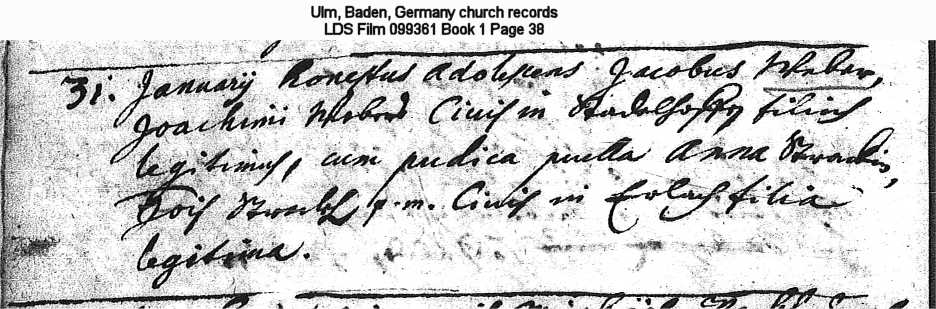 Ulm, Baden, Germany church records
LDS Film 099361 Book 1 Page 38
31. Januarij honestus adolescens Jacobus Weber,
Joachimi Weber Civis in Stadelhoffen filius
legitimus, cum pudica puella Anna
Jois p.m. Civis in Erlach filia
legitima.